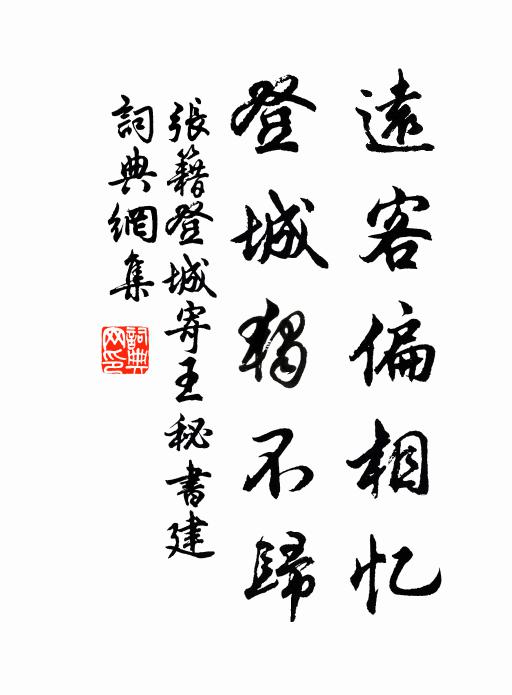 遠客偏相忆
登城獨不歸
張籍登城寄王秘書建
詞典網集
詞典网印